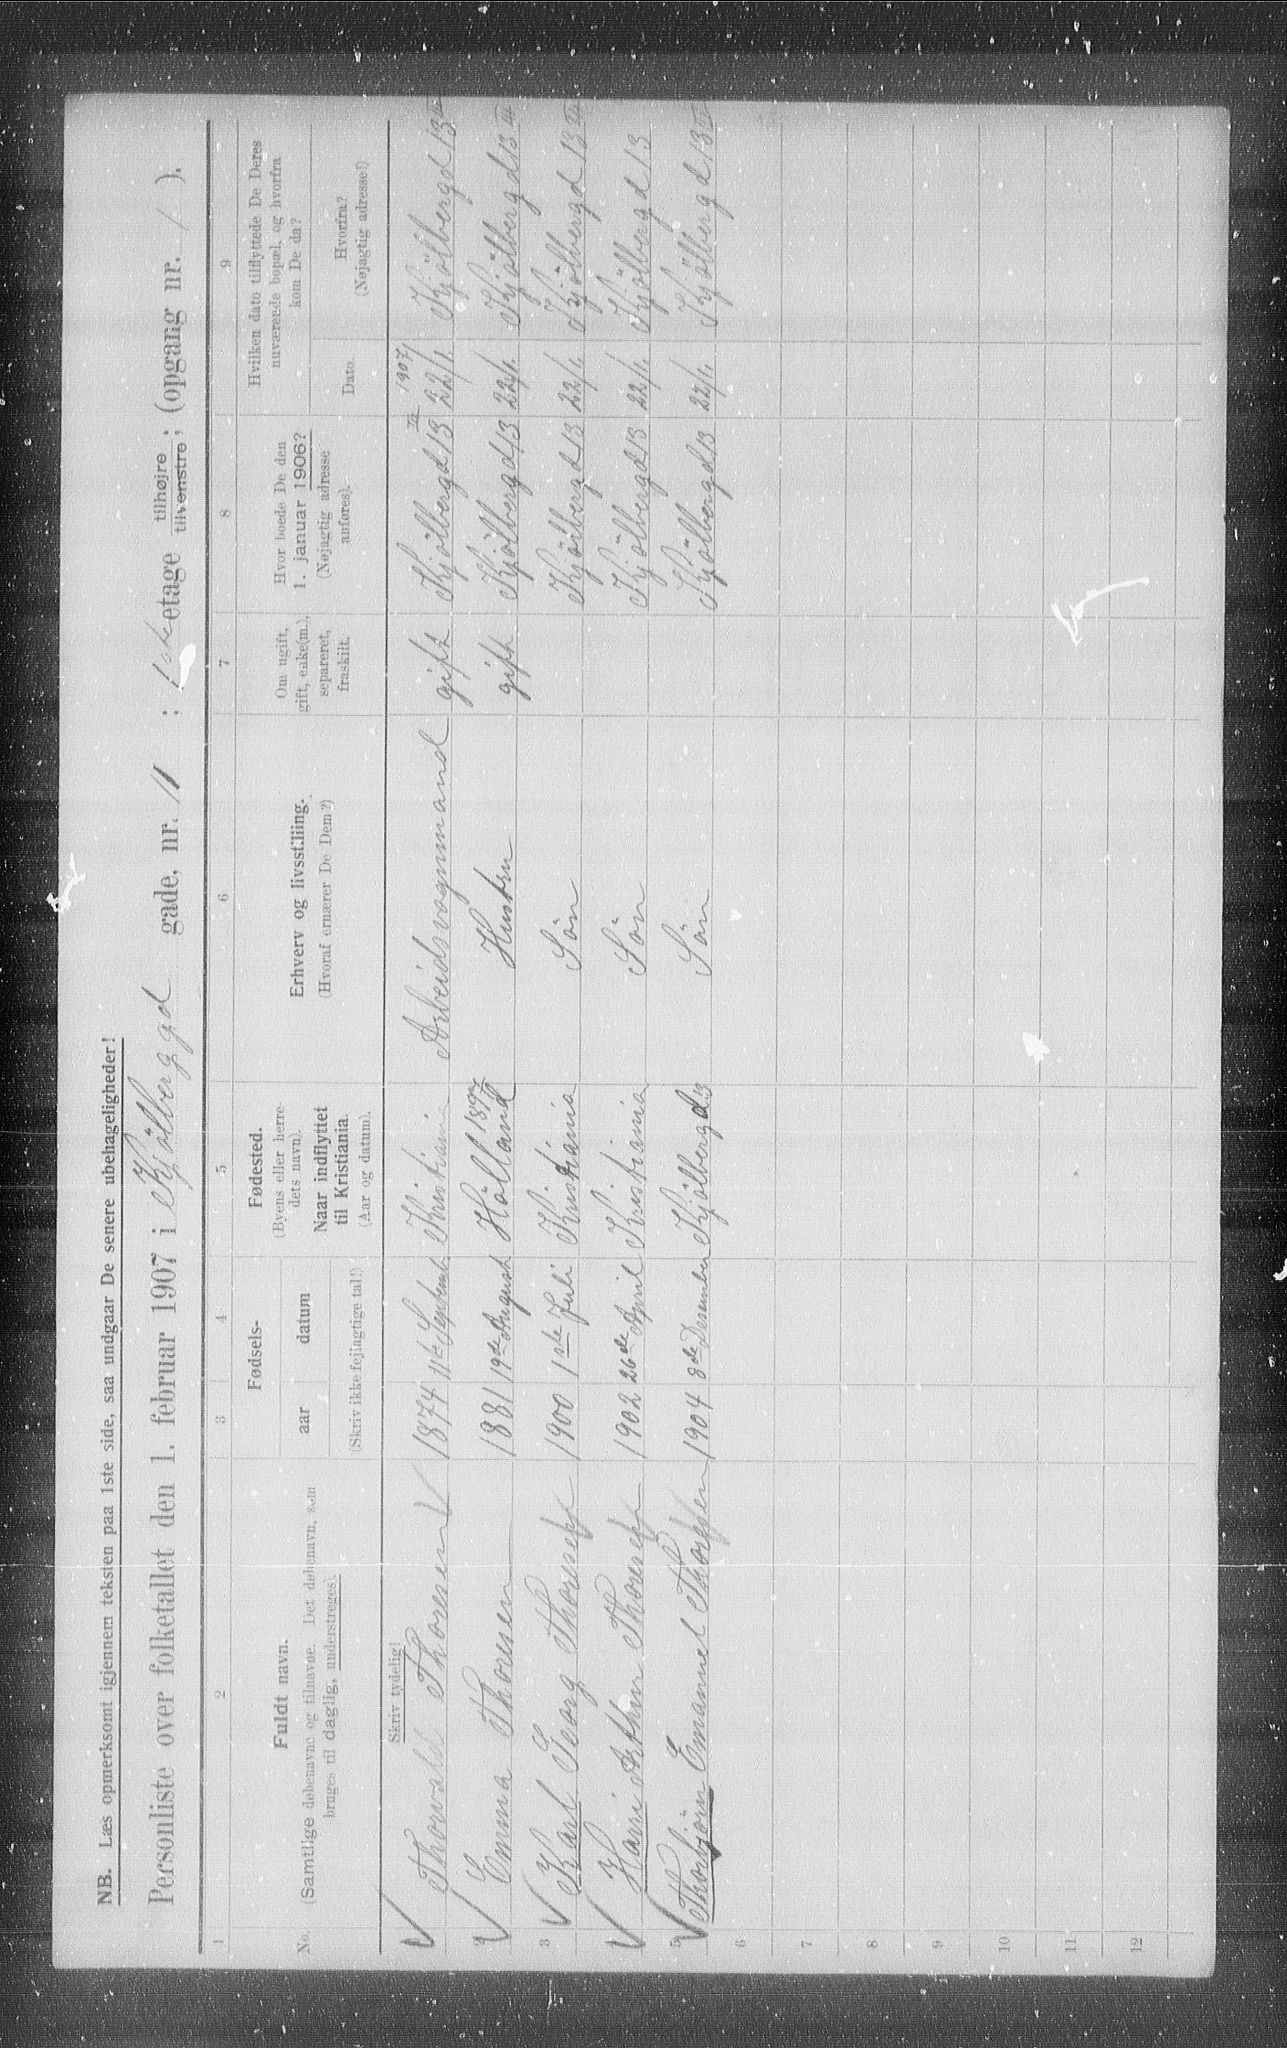 NB. Læs opmerksomt igjennem teksten paa 1ste side, saa undgaar De senere ubehageligheder!
Personliste over folketallet den 1. februar 1907 i Kjölberggd gade, nr. 11 ; 1ste etage tilhøjre tilvenstre; (opgang nr. 1 ).
1 2 3 4 5 6 7 8 9
No. Fuldt navn. (Samtlige døbenavne og tilnavne. Det døbenavn, som bruges til daglig, understreges).
Fødsels- aar datum (Skriv ikke fejlagtige tal!)
Fødested. (Byens eller herredets navn). Naar indflyttet til Kristiania. (Aar og datum).
Erhverv og livsstilling. (Hvoraf ernærer De Dem?)
Om ugift, gift, enke(m.), separeret, fraskilt.
Hvor boede De den 1. januar 1906? (Nøjagtig adresse anføres).
Hvilken dato tilflyttede De Deres nuværende bopæl, og hvorfra kom De da?
Dato. Hvorfra? (Nøjagtig adresse!)
Skriv tydelig!
Thorvald Thoresen 1874 11te September Kristiania Arbeidsvognmand gift Kjölbergd 13 III 1907 22/1 Kjölbergd 13 III
2 Emma Thoresen 1881 19de August Hölland 1897 Hustru gift Kjölbergd 13 22/1 Kjölbergd 13 III
3 Karl Georg Thoresen 1900 1ste Juli Kristiania Sön Kjölbergd 13 22/1 Kjölbergd 13 III
Harri Arthur Thoresen 1902 26de April Kristiania Sön Kjölbergd 13 22/1 Kjölbergd 13
5 Thorbjörn Emanuel Thoresen 1904 8de Desember Kjölbergd 13 Sön Kjölbergd 13 22/1 Kjölbergd 13 III
6
7
8
9
10
11
12